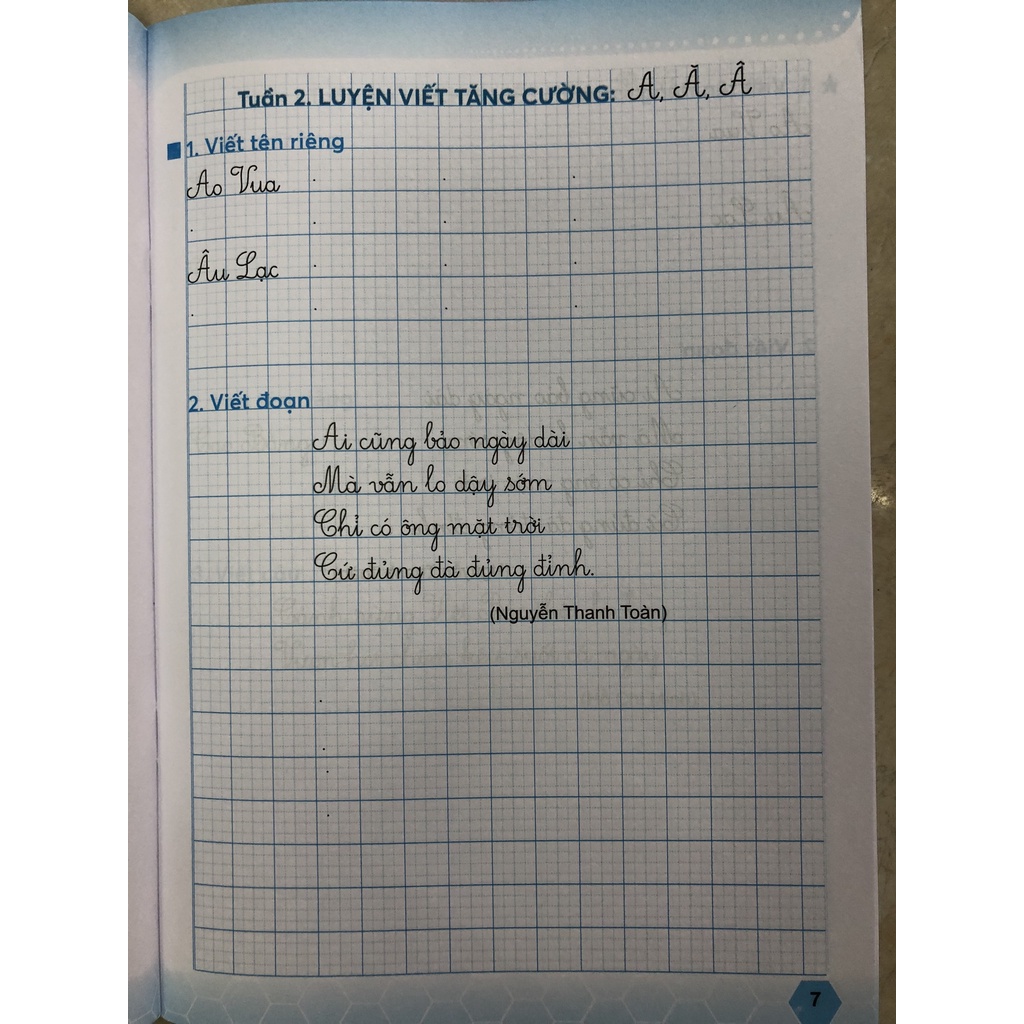 Tuần 2. LUYỆN VIẾT TĂNG CƯỜNG: A, Ă, Â
1. Viết tên riêng
Ao Vua
Âu Lạc
2. Viết đoạn
Ai cũng bảo ngày dài
Mà vẫn lo dậy sớm
Chỉ có ông mặt trời
Cứ đủng đà đủng đỉnh.
(Nguyễn Thanh Toàn)
7